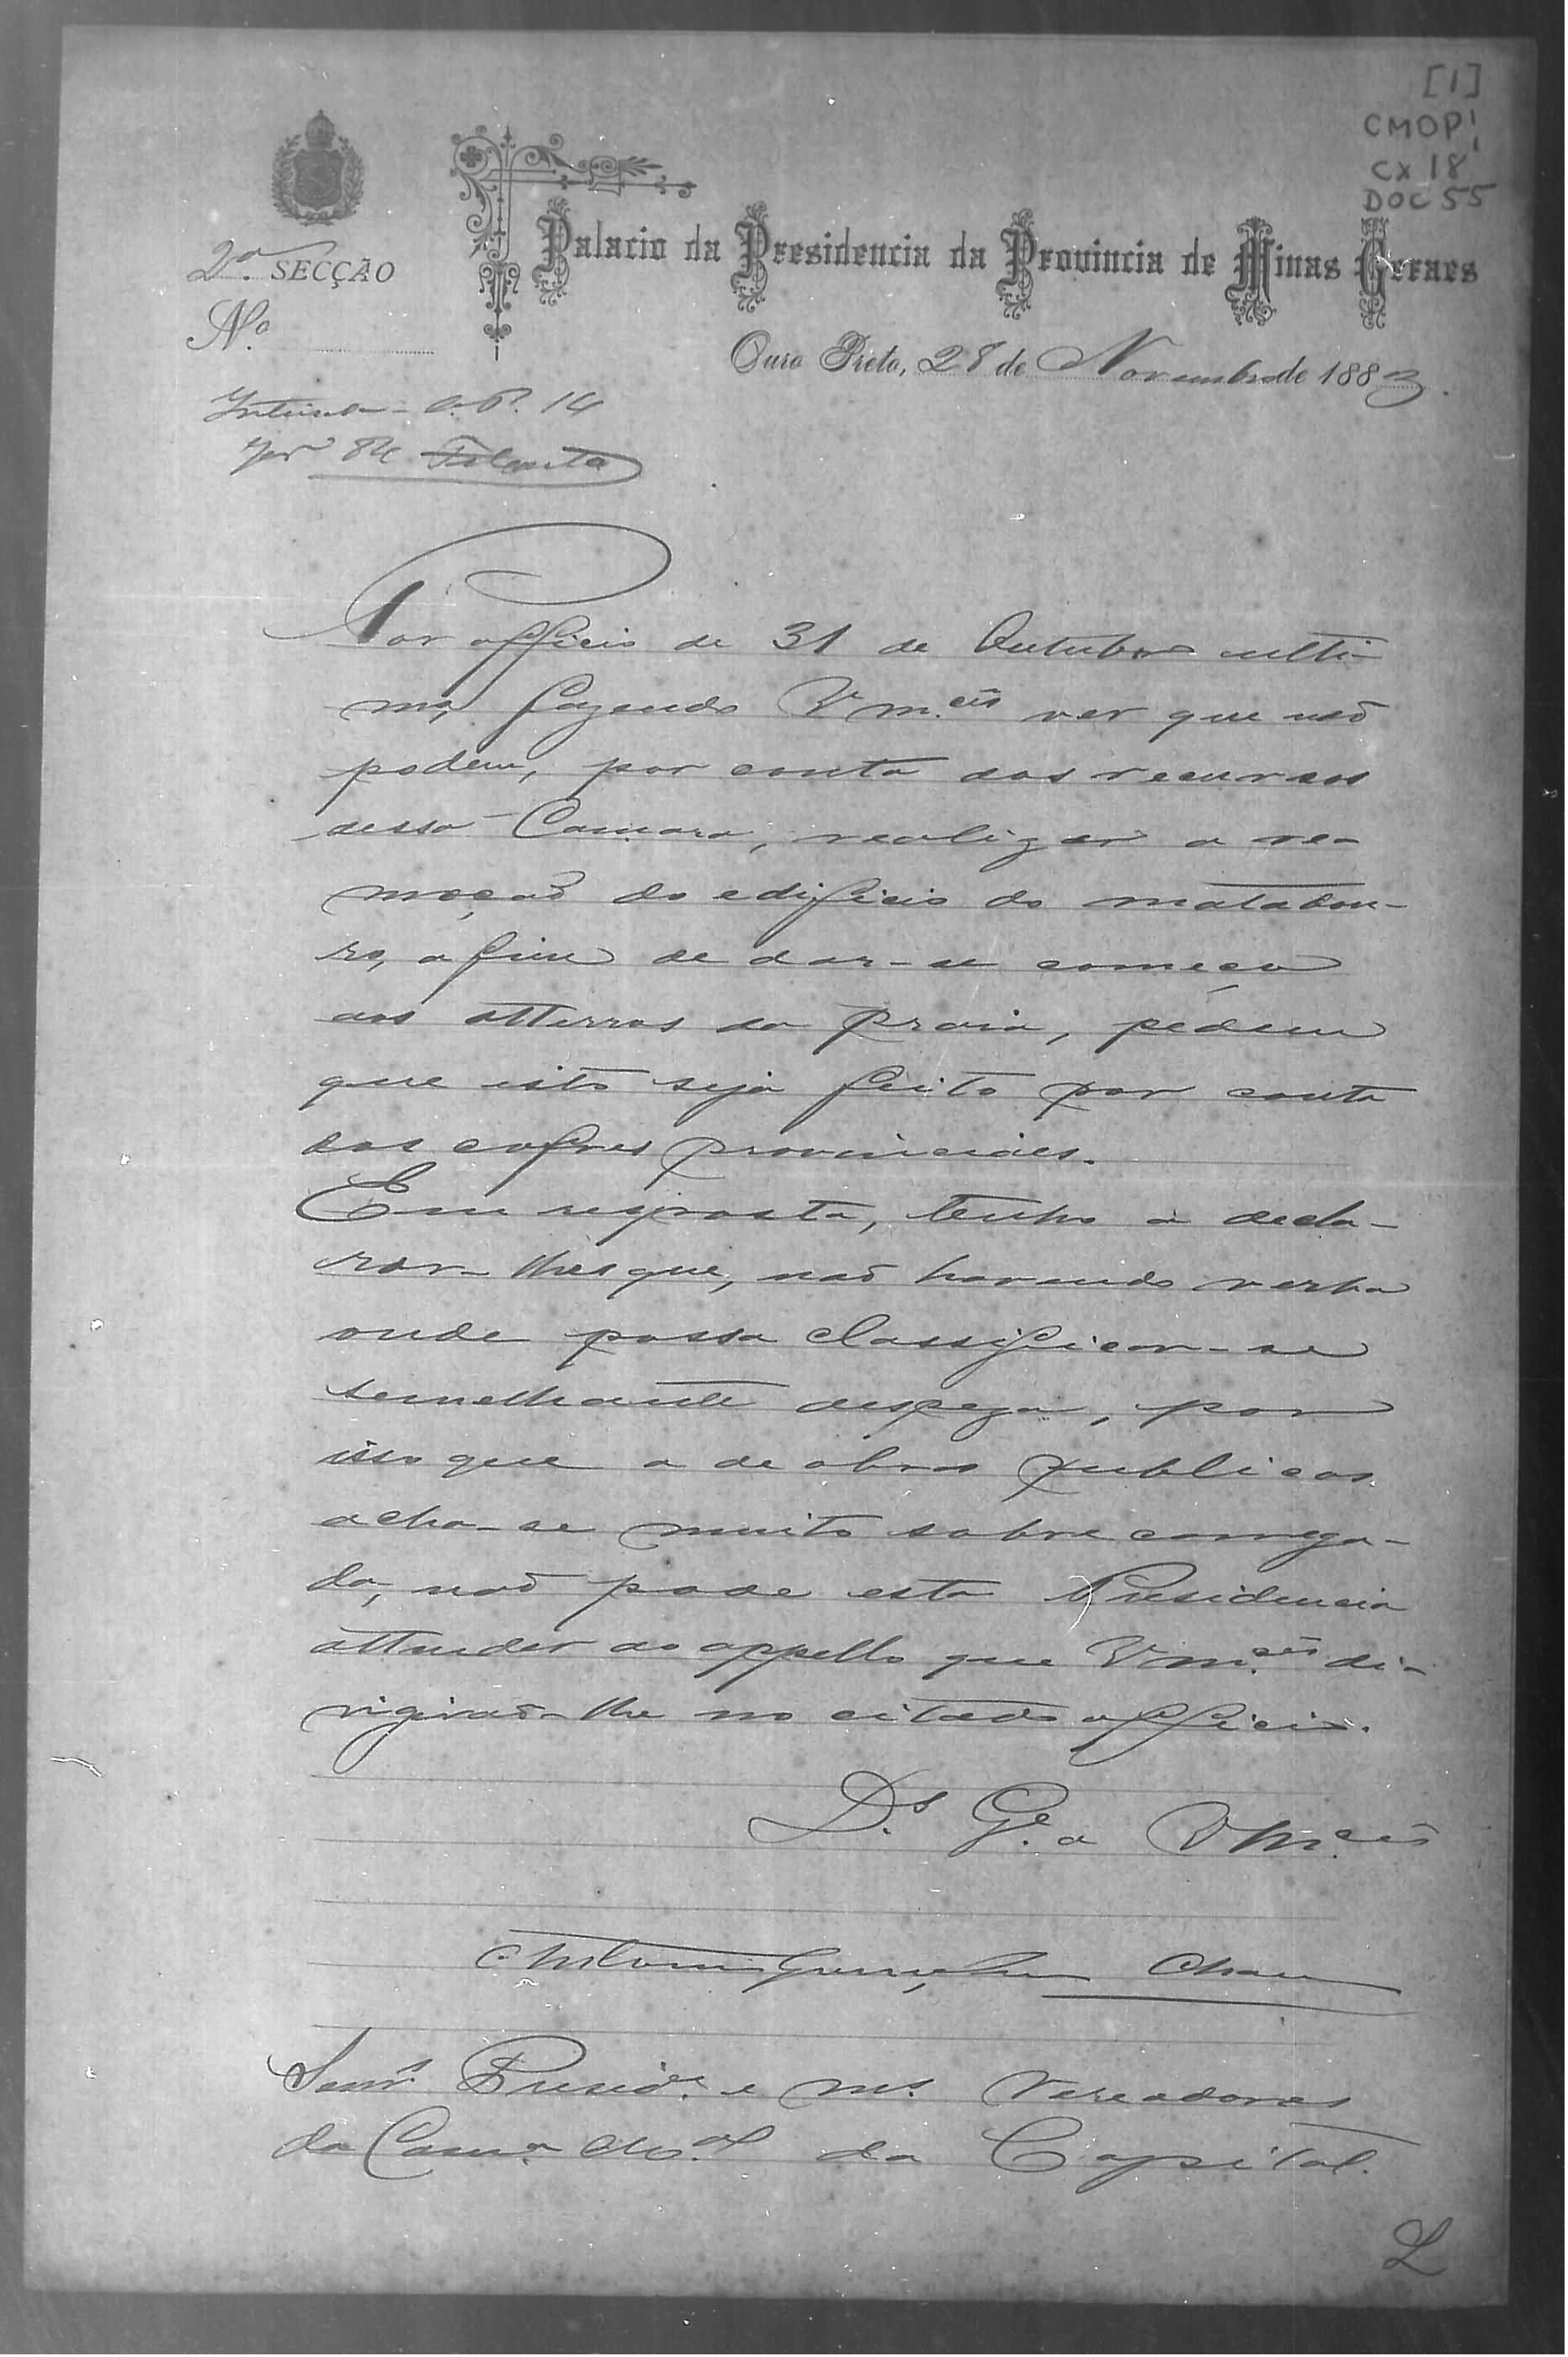 [1]
CMOP
CX 18
DOC 55
2ª SECÇÃO
Palacio da Presidencia da Provincia de Minas Geraes
Nº
Ouro Preto, 28 de Novembro de 1883.
Inteirada O.P. 14
84
Por officio de 31 de Outubro ulti-
mo, fazendo Vm.cês ver que naõ
podem, por conta dos recursos
dessa Camara, realizar a re-
moçaõ do edificio do matadou-
ro, a fim de dar-se começo
aos atterros da praia, pedem
que isto seja feito por conta
dos cofres provinciaes.
Em resposta, tenho a decla-
rar-lhes que, naõ havendo verba
onde possa classificar-se
semelhante despeza, por
isso que a de obras publicas
acha-se muito sobrecarrega-
da, naõ pode esta Presidencia
attender ao appello que Vm.cês di-
rigiraõ-lhe no citado officio.
D.s G.e a Vm.cês
Antonio Gonçalves Chaves
Senr.s Presid.e e m.s Vereadores
da Cam.a M.al da Capital.
L